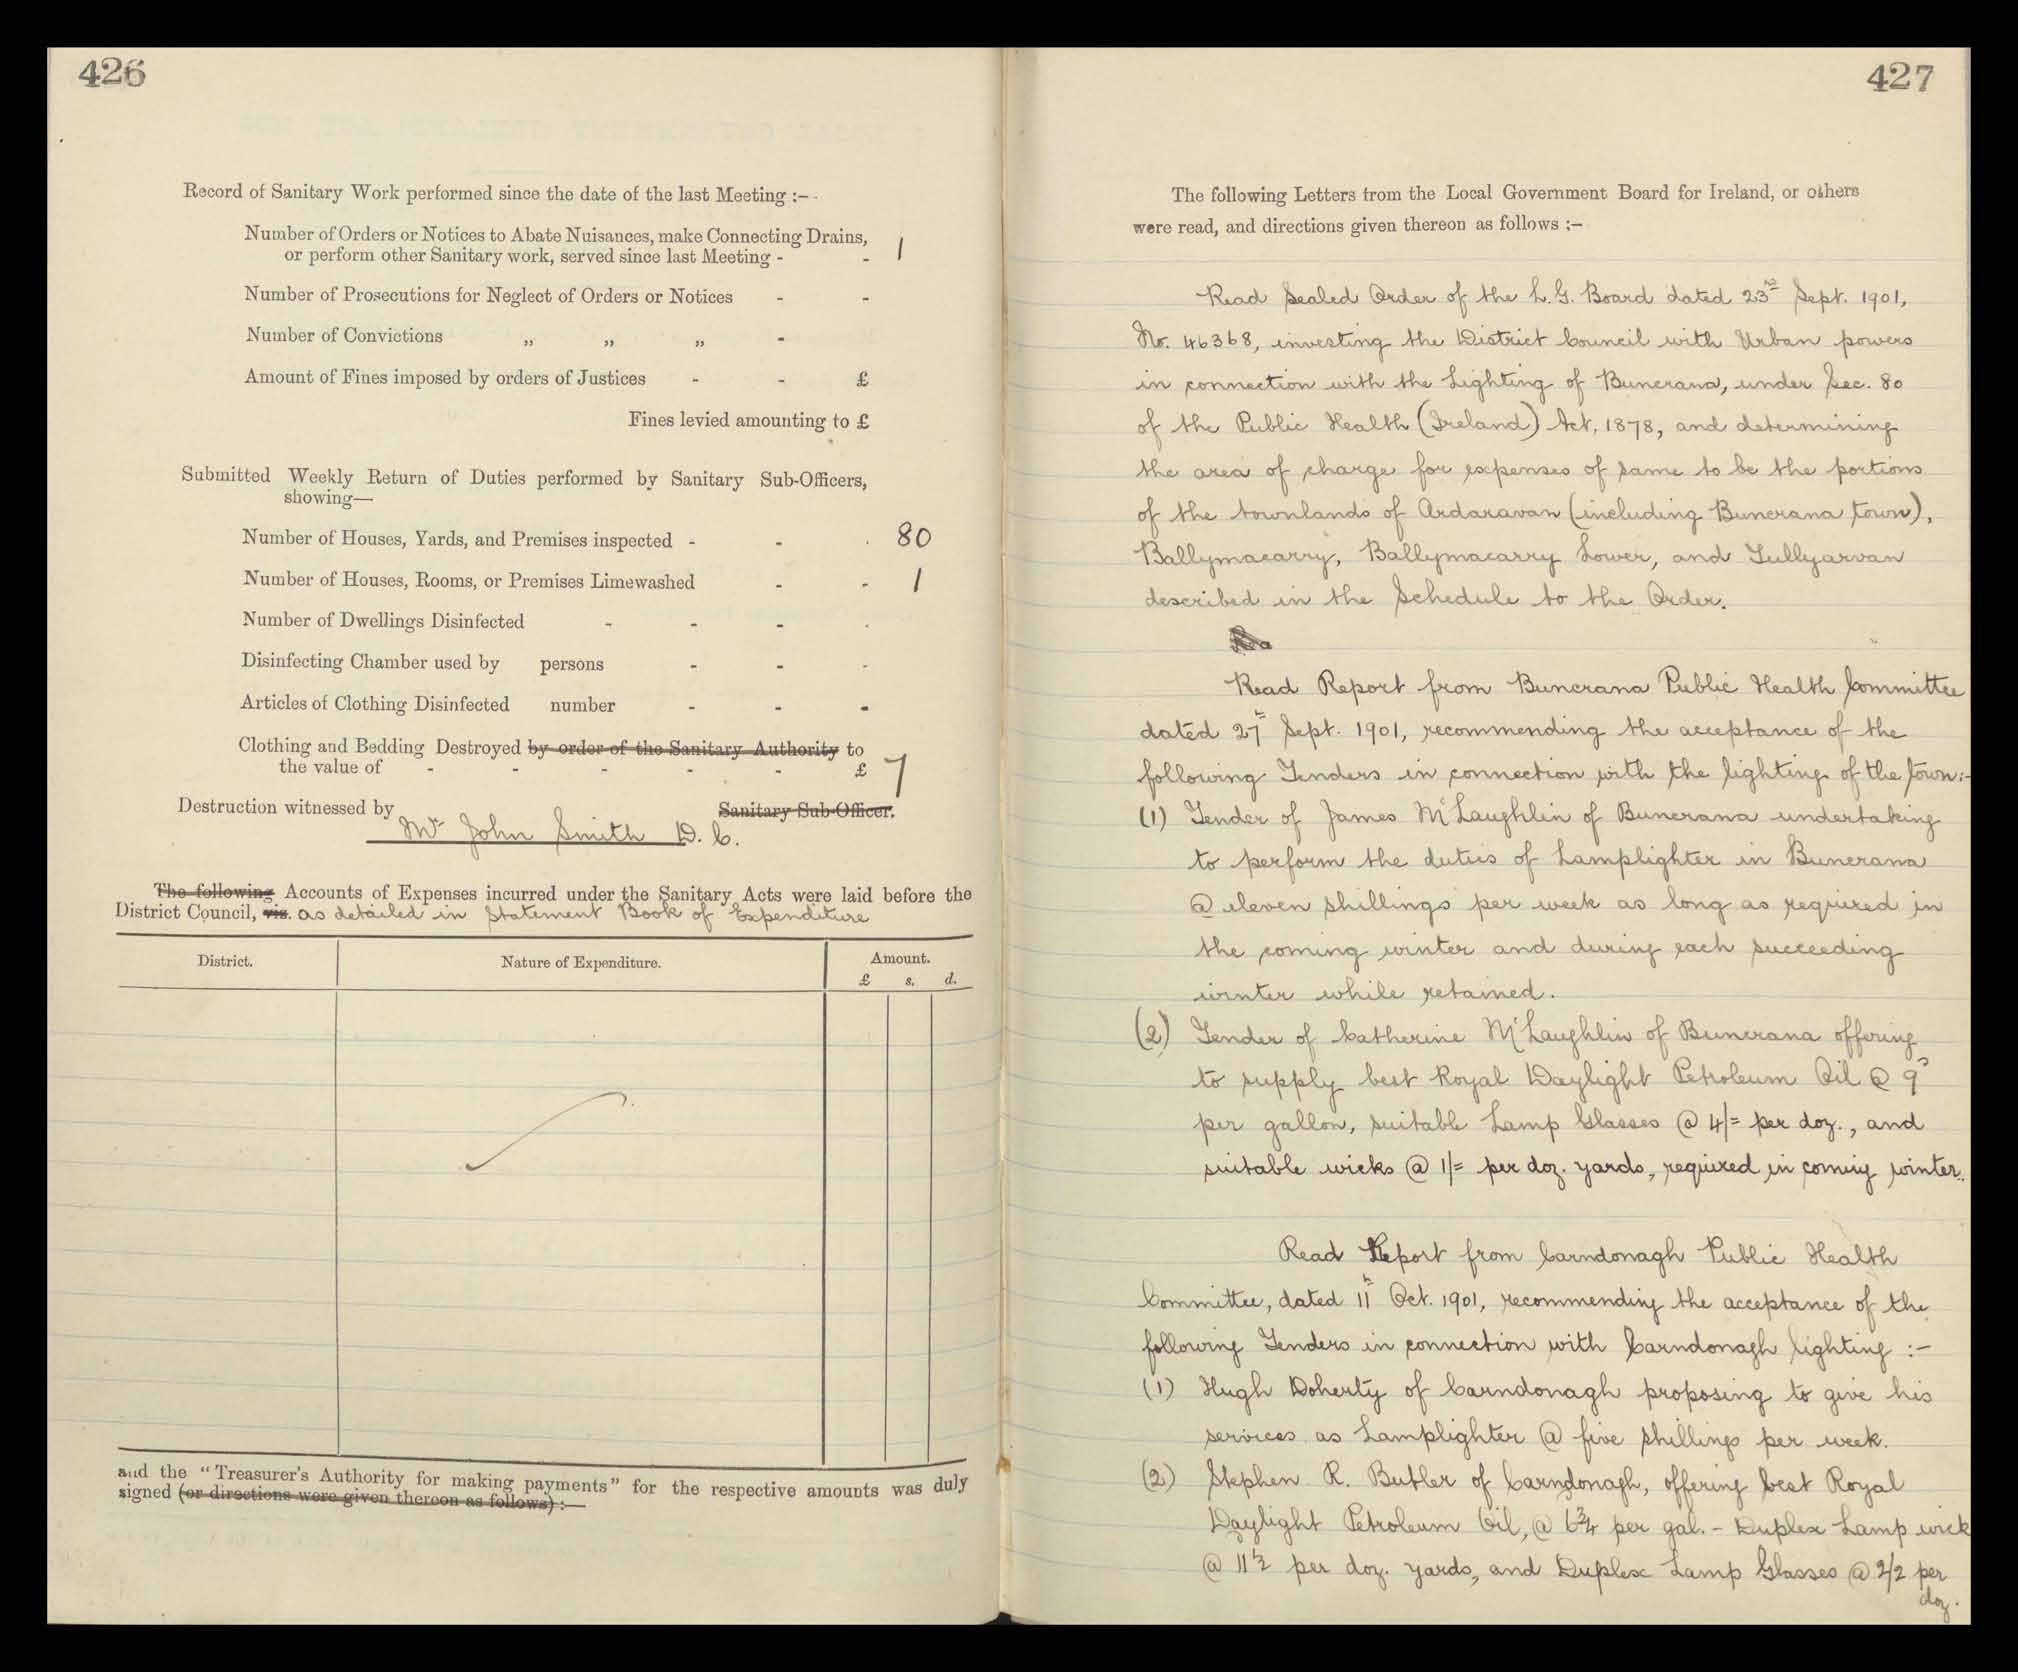 426
Record of Sanitary Work performed since the date of the last Meeting :—
Number of Orders or Notices to Abate Nuisances, make Connecting Drains,
or perform other Sanitary work, served since last Meeting - - 1
Number of Prosecutions for Neglect of Orders or Notices - -
Number of Convictions „ „ „ -
Amount of Fines imposed by orders of Justices - - £
Fines levied amounting to £
Submitted Weekly Return of Duties performed by Sanitary Sub-Officers,
showing—
Number of Houses, Yards, and Premises inspected - - . 80
Number of Houses, Rooms, or Premises Limewashed - - 1
Number of Dwellings Disinfected - - - .
Disinfecting Chamber used by persons - - -
Articles of Clothing Disinfected number - - -
Clothing and Bedding Destroyed by order of the Sanitary Authority to
the value of - - - - - £ 7
Destruction witnessed by Sanitary Sub-Officer.
Mr John Smith D. C.
The following Accounts of Expenses incurred under the Sanitary Acts were laid before the
District Council, viz. as detailed in Statement Book of Expenditure
District. Nature of Expenditure. Amount.
£ s. d.
and the "Treasurer's Authority for making payments" for the respective amounts was duly
signed (or directions were given thereon as follows) :—
427
The following Letters from the Local Government Board for Ireland, or others
were read, and directions given thereon as follows ;—
Read Sealed Order of the L. G. Board dated 23rd Sept. 1901,
No. 46368, investing the District Council with Urban powers
in connection with the Lighting of Buncrana, under Sec. 80
of the Public Health (Ireland) Act, 1878, and determining
the area of charge for expenses of same to be the portions
of the townlands of Ardaravan (including Buncrana town),
Ballymacarry, Ballymacarry Lower, and Tullyarvan
described in the Schedule to the Order.
Rea
Read Report from Buncrana Public Health Committee
dated 27h Sept. 1901, recommending the acceptance of the
following Tenders in connection with the lighting of the town:-
(1) Tender of James McLaughlin of Buncrana undertaking
to perform the duties of Lamplighter in Buncrana
@ eleven shillings per week as long as required in
the coming winter and during each succeeding
winter while retained.
(2) Tender of Catherine McLaughlin of Buncrana offering
to supply best Royal Daylight Petroleum Oil @ 9d
per gallon, suitable Lamp Glasses @ 4/= per doz., and
suitable wicks @ 1/= per doz. yards, required in coming winter.
Read Report from Carndonagh Public Health
Committee, dated 11h Oct. 1901, recommending the acceptance of the
following Tenders in connection with Carndonagh lighting :-
(1) Hugh Doherty of Carndonagh proposing to give his
services as Lamplighter @ five shillings per week.
(2) Stephen R. Butler of Carndonagh, offering best Royal
Daylight Petroleum Oil, @ 6¾ per gal. - Duplex Lamp wick
@ 11½ per doz. yards, and Duplex Lamp Glasses @ 2/2 per
doz.